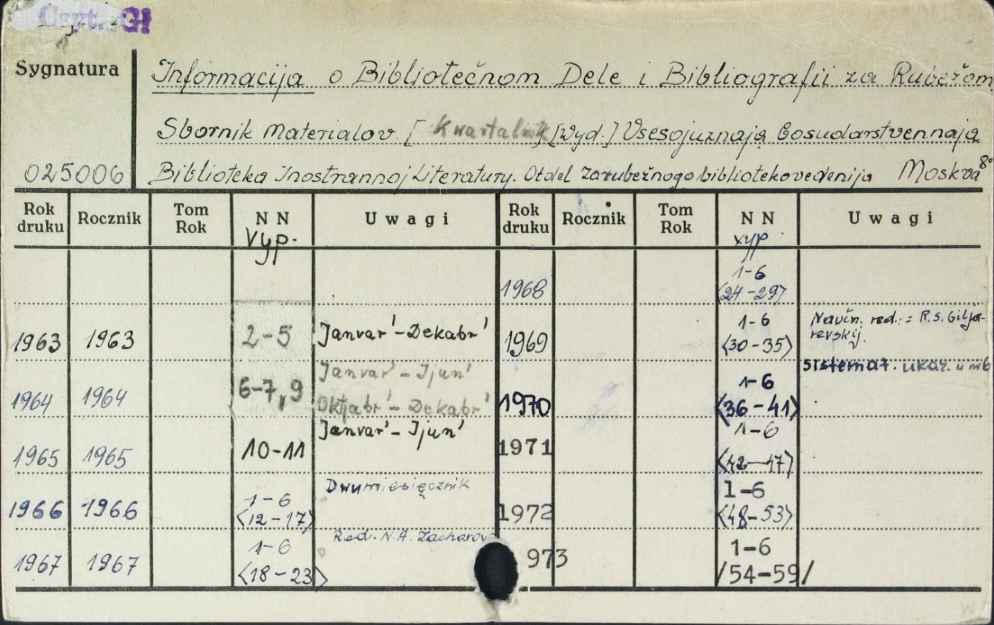 Sygnatura
Informacija o Bibliotečnom Dele i Bibliografii za Rubežom
Sbornik Materialov [Kwartalnik] [Wyd.] Vsesojuznaja Gosudarstvennaja
025006 Biblioteka Inostrannoj Literatury. Otdel zarubežnogo bibliotekovedenija Moskva 8°
Rok druku Rocznik Tom Rok NN Uwagi Rok druku Rocznik Tom Rok NN Uwagi
Vyp. vyp
1968 1-6 <24-29>
1963 1963 2-5 Janvar'-Dekabr' 1969 1-6 <30-35> Naučn. red.: R.S. Giljarevskij.
1964 1964 6-7, 9 Janvar'-Ijun' Oktjabr'-Dekabr' 1970 1-6 <36-41> sistemat. ukaz. u nr6
1965 1965 10-11 Janvar'-Ijun' 1971 1-6 <42-47>
1966 1966 1-6 <12-17> Dwumiesięcznik 1972 1-6 <48-53>
1967 1967 1-6 <18-23> Red. N.A. Zacharov 973 1-6 /54-59/